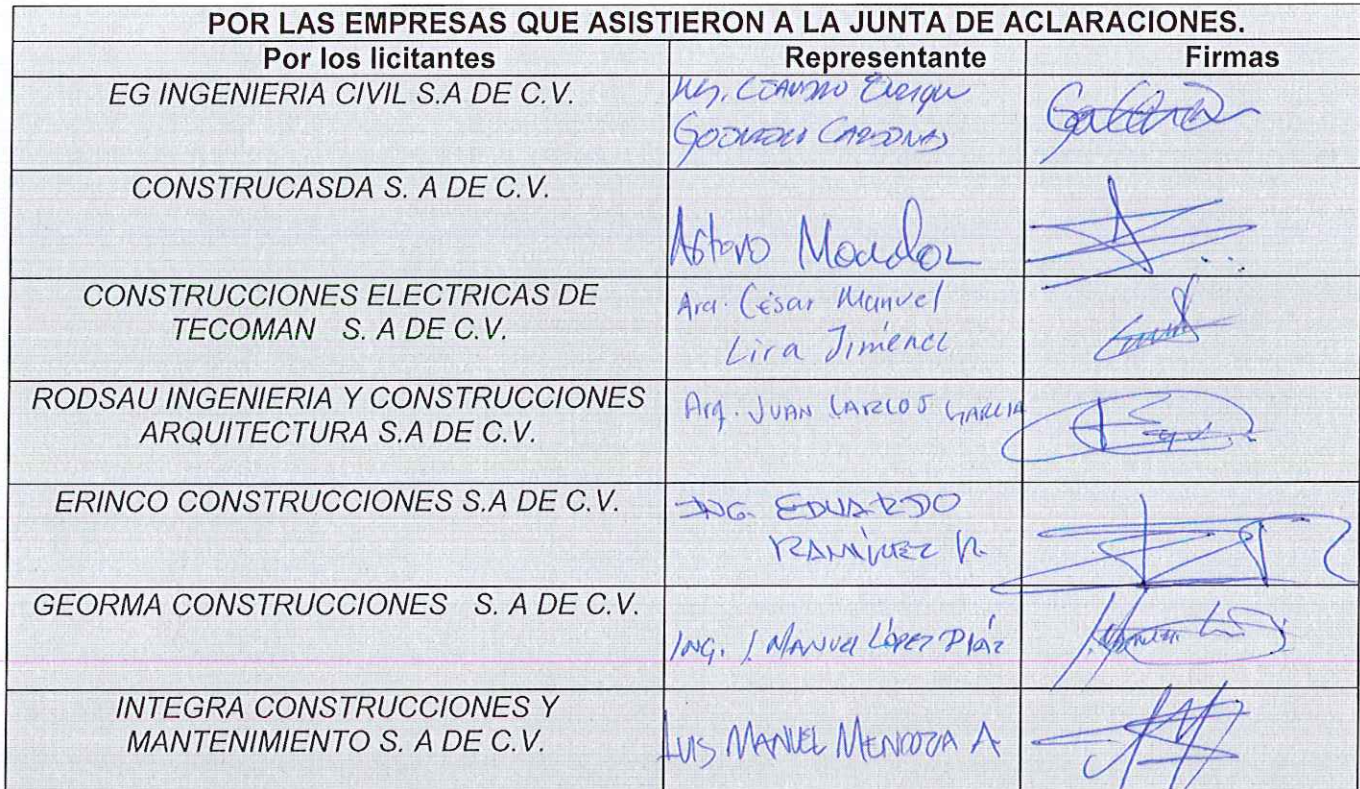 POR LAS EMPRESAS QUE ASISTIERON A LA JUNTA DE ACLARACIONES.
Por los licitantes Representante Firmas
EG INGENIERIA CIVIL S.A DE C.V.
CONSTRUCASDA S. A DE C.V.
Arturo
CONSTRUCCIONES ELECTRICAS DE
TECOMAN S. A DE C.V.
Arq. César Manuel
Lira Jiménez
RODSAU INGENIERIA Y CONSTRUCCIONES
ARQUITECTURA S.A DE C.V.
Arq. JUAN CARLOS GARCIA
ERINCO CONSTRUCCIONES S.A DE C.V.
ING. EDUARDO
RAMÍREZ R.
GEORMA CONSTRUCCIONES S. A DE C.V.
ING. J. MANUEL LÓPEZ DÍAZ
INTEGRA CONSTRUCCIONES Y
MANTENIMIENTO S. A DE C.V.
LUIS MANUEL MENDOZA A